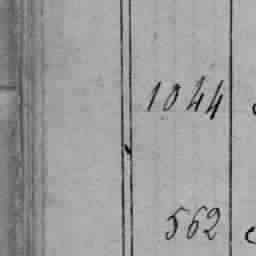 1044
562